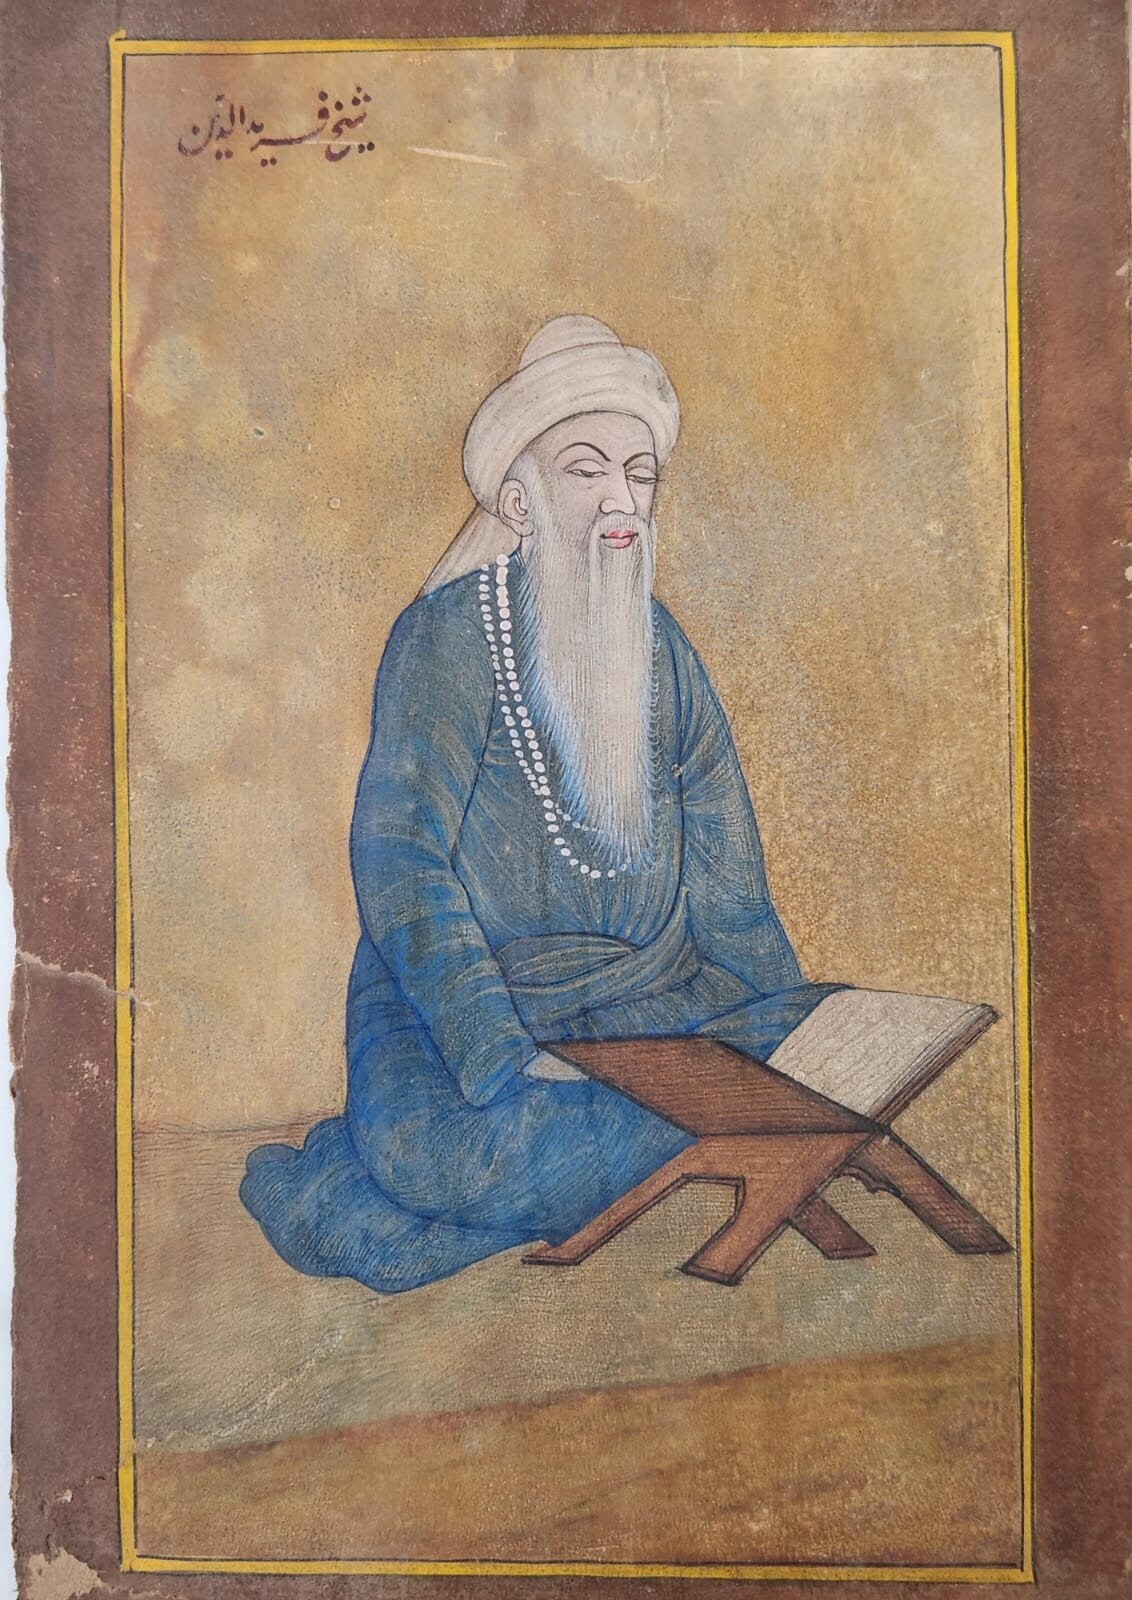 شیخ فریدالدین